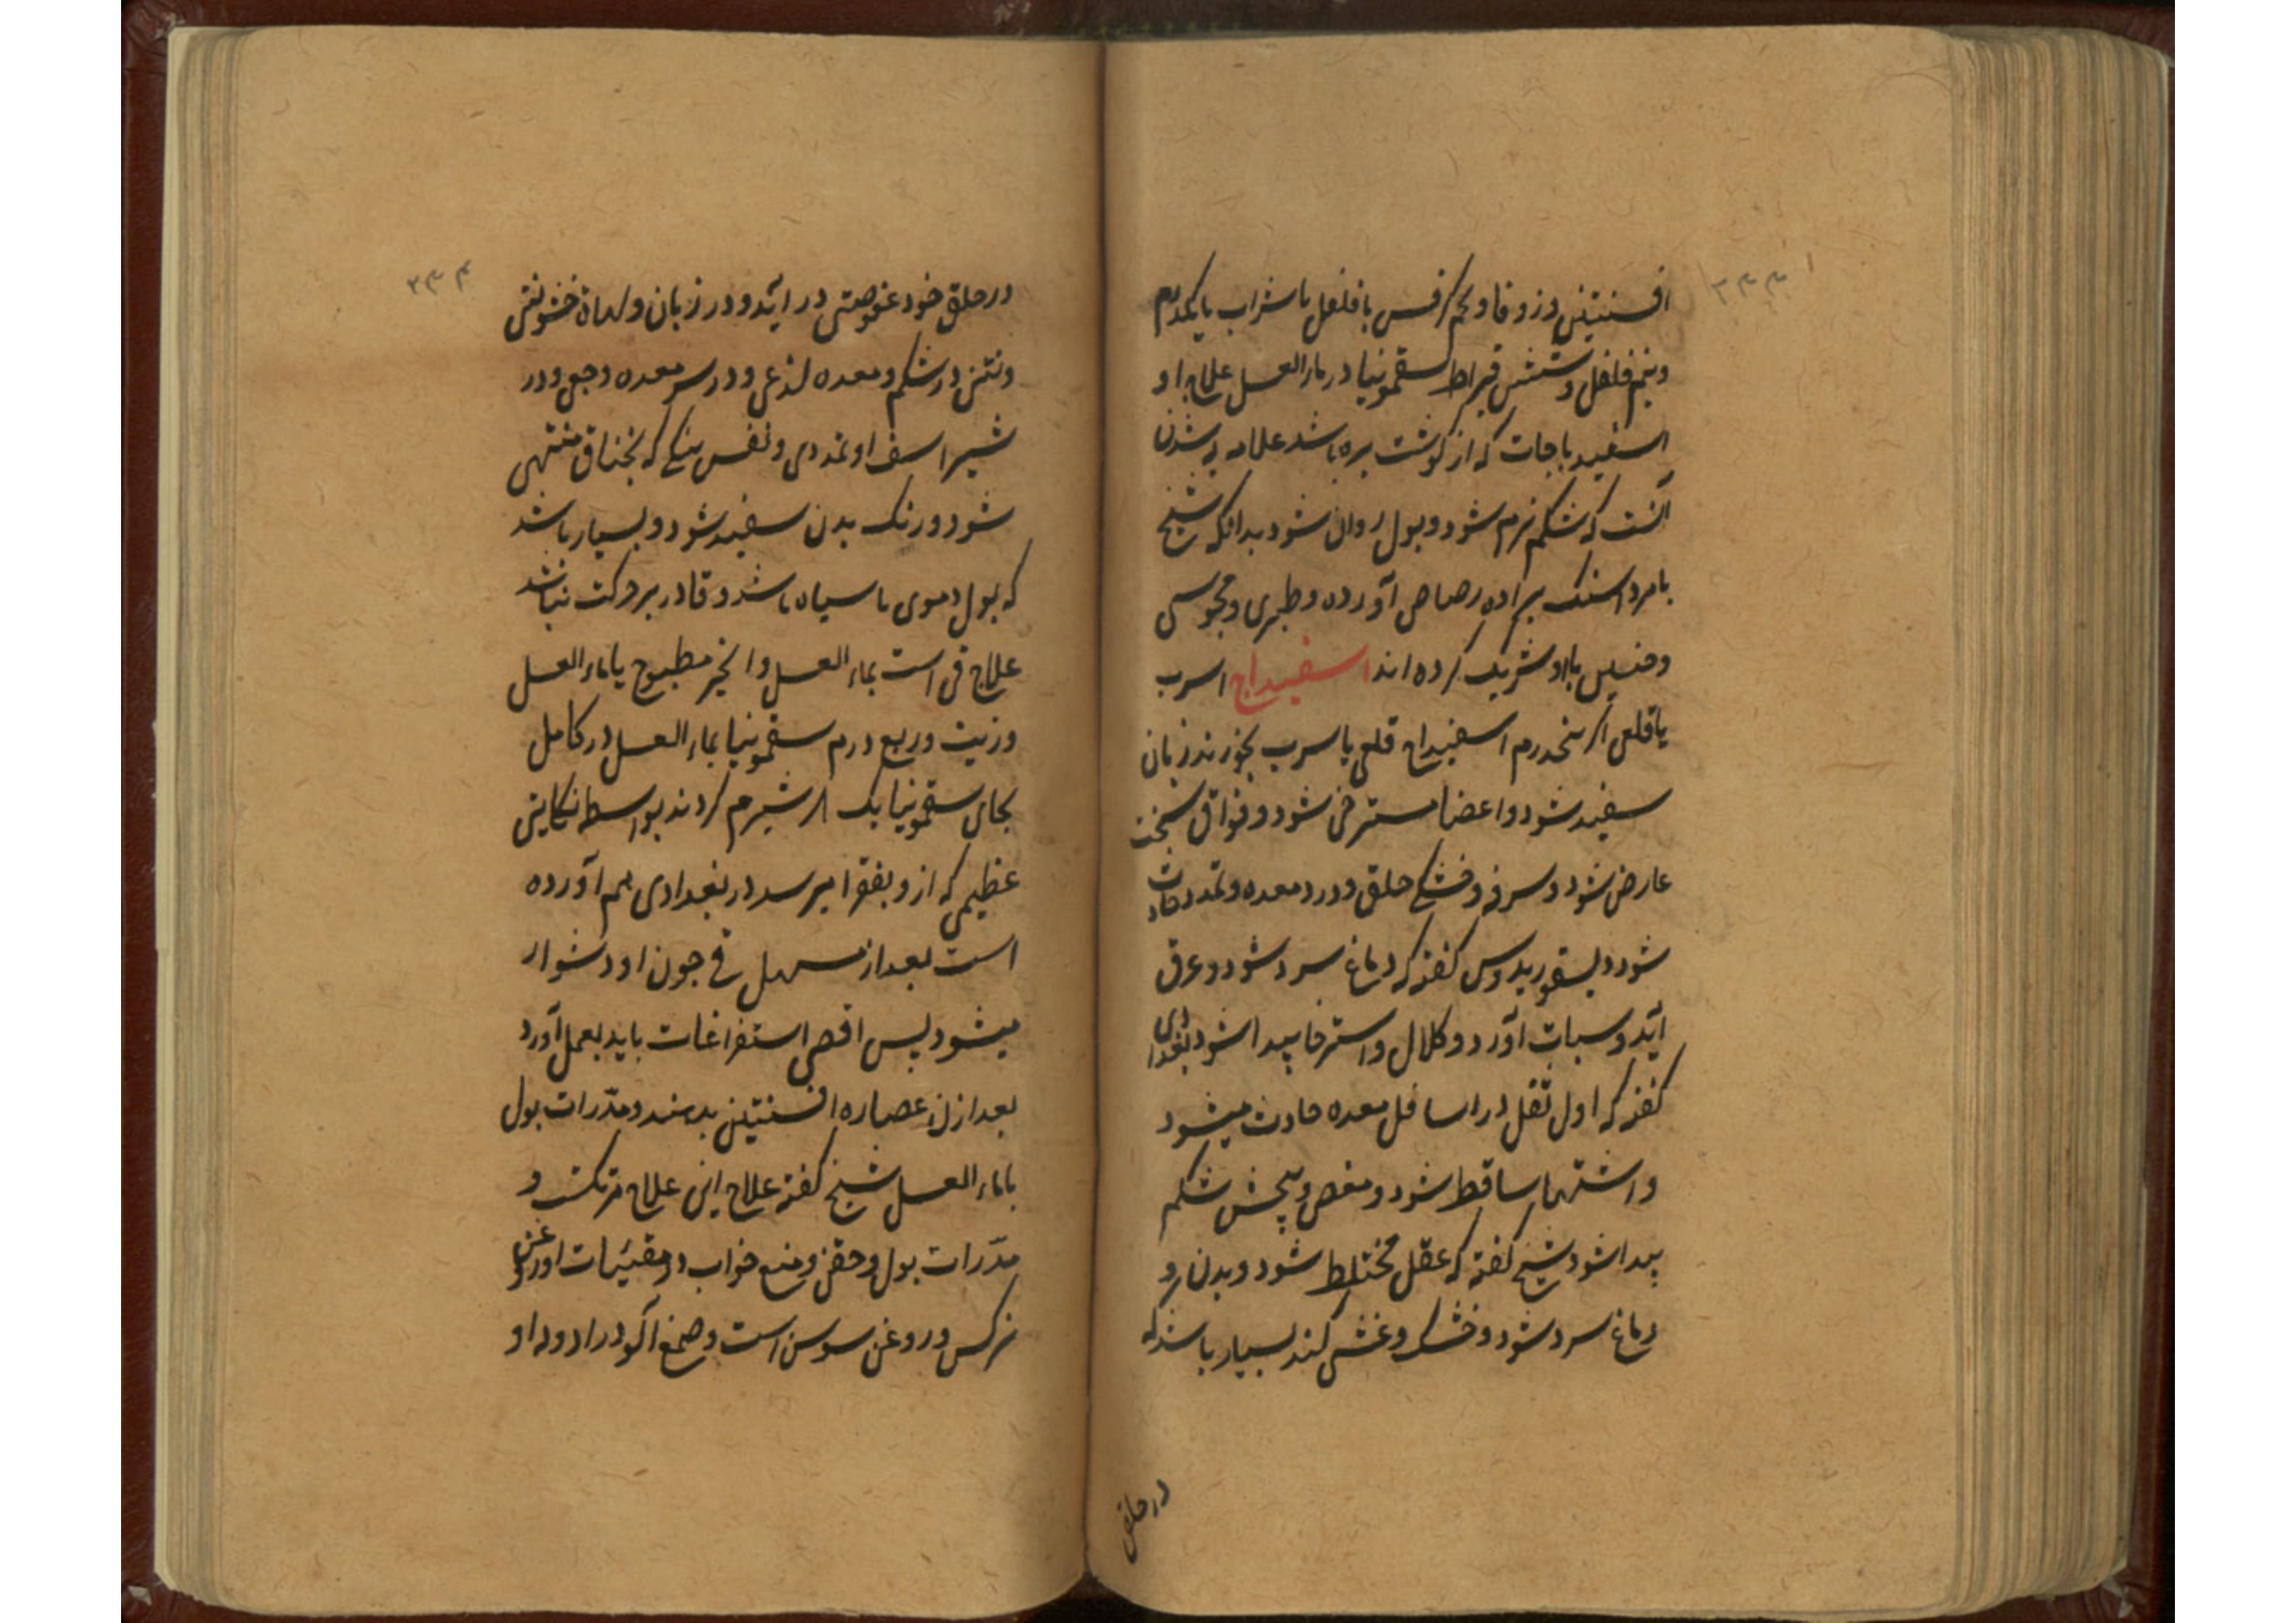 ۳۳۳
افسنتین و زوفا و تخم کرفس با فلفل با شراب یا یکدرم
و نیم فلفل و شش قیراط سقمونیا در ماء العسل علاج او
اسفیدباجات که از گوشت بره باشد علامه به شدن
آنست که شکم نرم شود و بول روان شود بدانکه شیخ
با مرداسنک براده رصاص آورده و طبری و مجوسی
و خسیس با او شریک کرده اند اسفیداج اسرب
یا قلعی اکر پنجدرم اسفیداج قلعی یا سرب بخورند زبان
سفید شود و اعضا مسترخی شود و فواق سخت
عارض شود و سرفه و خشکی حلق و درد معده و تمدد حادث
شود دیسقوریدوس کفته که دماغ سرد شود و عرق
آید و سبات آورد و کلال و استرخا پیدا شود بغدادی
کفته که اول ثقل در اسافل معده حادث میشود
و اشتها ساقط شود و مغص و پیچش شکم
پیدا شود شیخ کفته که عقل مختلط شود و بدن و
دماغ سرد شود و خشک و غشی کند بسیار باشد که
در حلق
۳۳۴
در حلق خود عفوصتی در آید و در زبان و لهاة خشونتی
و نتن در شکم و معده لذعی و در سر معده وجع و در
شراسیف او تمددی و نفس تنگی که بخناق منتهی
شود و رنک بدن سفید شود و بسیار باشد
که بول دموی یا سیاه باشد و قادر بر حرکت نباشد
علاج قی است بماء العسل و انجیر مطبوخ یا ماء العسل
و زیت و ربع درم سقمونیا بماء العسل در کامل
بجای سقمونیا یک شبرم کردند بواسطه نکایتی
عظیمی که ازو بفقرا میرسد در بغدادی هم آورده
است بعد از مسهل قی چون او دشوار
میشود پس اقصی استفراغات باید بعمل آورد
بعد ازان عصاره افسنتین بدهند و مدرات بول
با ماء العسل شیخ کفته علاج این علاج مرتکست و
مدرات بول و حقن و منع خواب و مقیئات او روغن
نرکس و روغن سوسن است و صمغ آلو در ادویه او